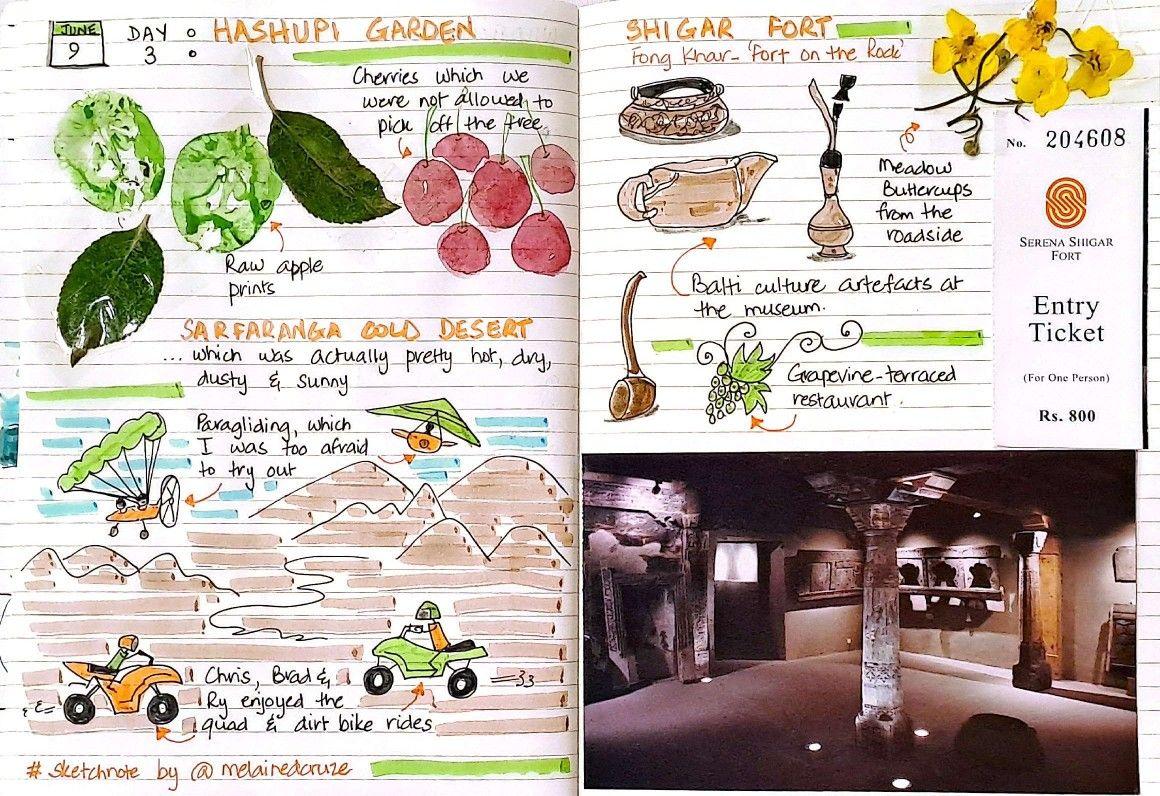 JUNE
9
DAY
3
HASHUPI GARDEN
Cherries which we
were not allowed to
pick off the tree
Raw apple
prints
SARFARANGA COLD DESERT
... which was actually pretty hot, dry,
dusty & sunny
Paragliding, which
I was too afraid
to try out
Chris, Brad &
Ry enjoyed the
quad & dirt bike rides
# sketchnote by @melainedcruze
SHIGAR FORT
Fong Khar - 'Fort on the Rock'
Meadow
Buttercups
from the
roadside
Balti culture artefacts at
the museum.
Grapevine-terraced
restaurant.
No. 204608
SERENA SHIGAR
FORT
Entry
Ticket
(For One Person)
Rs. 800